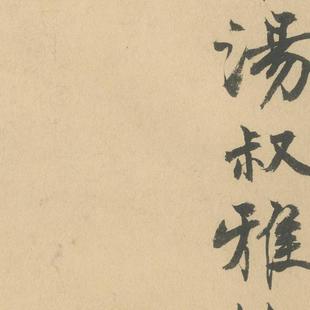 湯叔雅